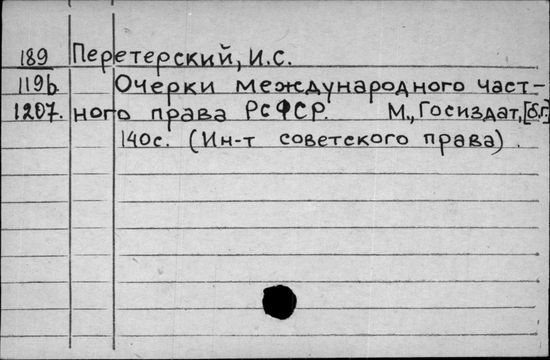 189 Перетерский, И.С.
119б Очерки международного част-
1207. ного права РСФСР. М., Госиздат, [б.г.]
140с. (Ин-т советского права).